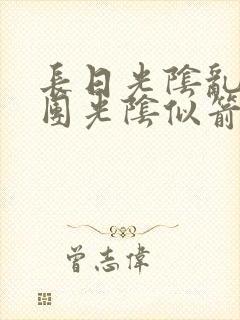 長日光陰亂
團光陰似箭
曾志偉